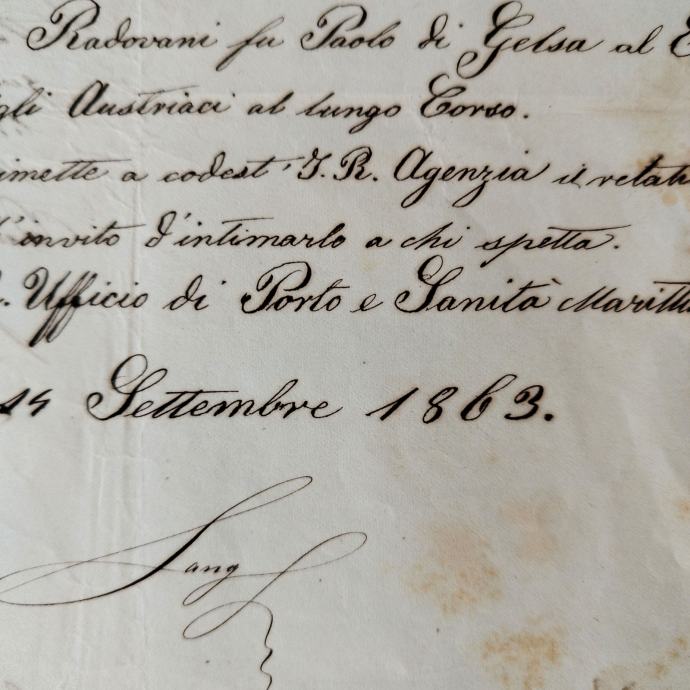 Radovani fu Paolo di Gelsa al
gli Austriaci al lungo Corso.
imette a codest' I. R. Agenzia il relati
l'invito d'intimarlo a chi spetta.
. Ufficio di Porto e Sanità Maritti
14 Settembre 1863.
Lang